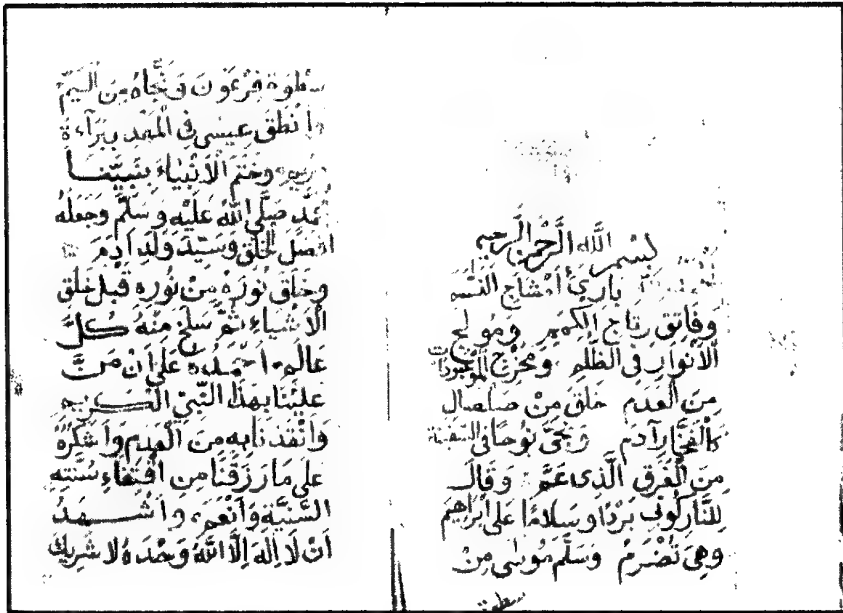 بسم الله الرحمن الرحيم
بارئ أمشاج النسم
وفاتق رتاج الكمم ومولج
الأنوار في الظلم ومخرج الموجودات
من العدم خلق من صلصال
كالفخار آدم ونجى نوحا في السفينة
من الغرق الذي عم وقال
للنار كوني بردا وسلاما على ابراهيم
وهي تضرم وسلم موسى من
سطوة
سطوة فرعون ونجاه من اليم
وأنطق عيسى في المهد ببراءة
وختم الأنبياء بنبينا
محمد صلى الله عليه وسلم وجعله
افضل الخلق وسيد ولد ادم
وخلق نوره من نوره قبل خلق
الاشياء ثم سلخ منه كل
عالم احمده على ان من
علينا بهذا النبي الكريم
وانقذنا به من العدم واشكره
على ما رزقنا من اقتفاء سنته
السنية وانعم واشهد
ان لا اله الا الله وحده لا شريك